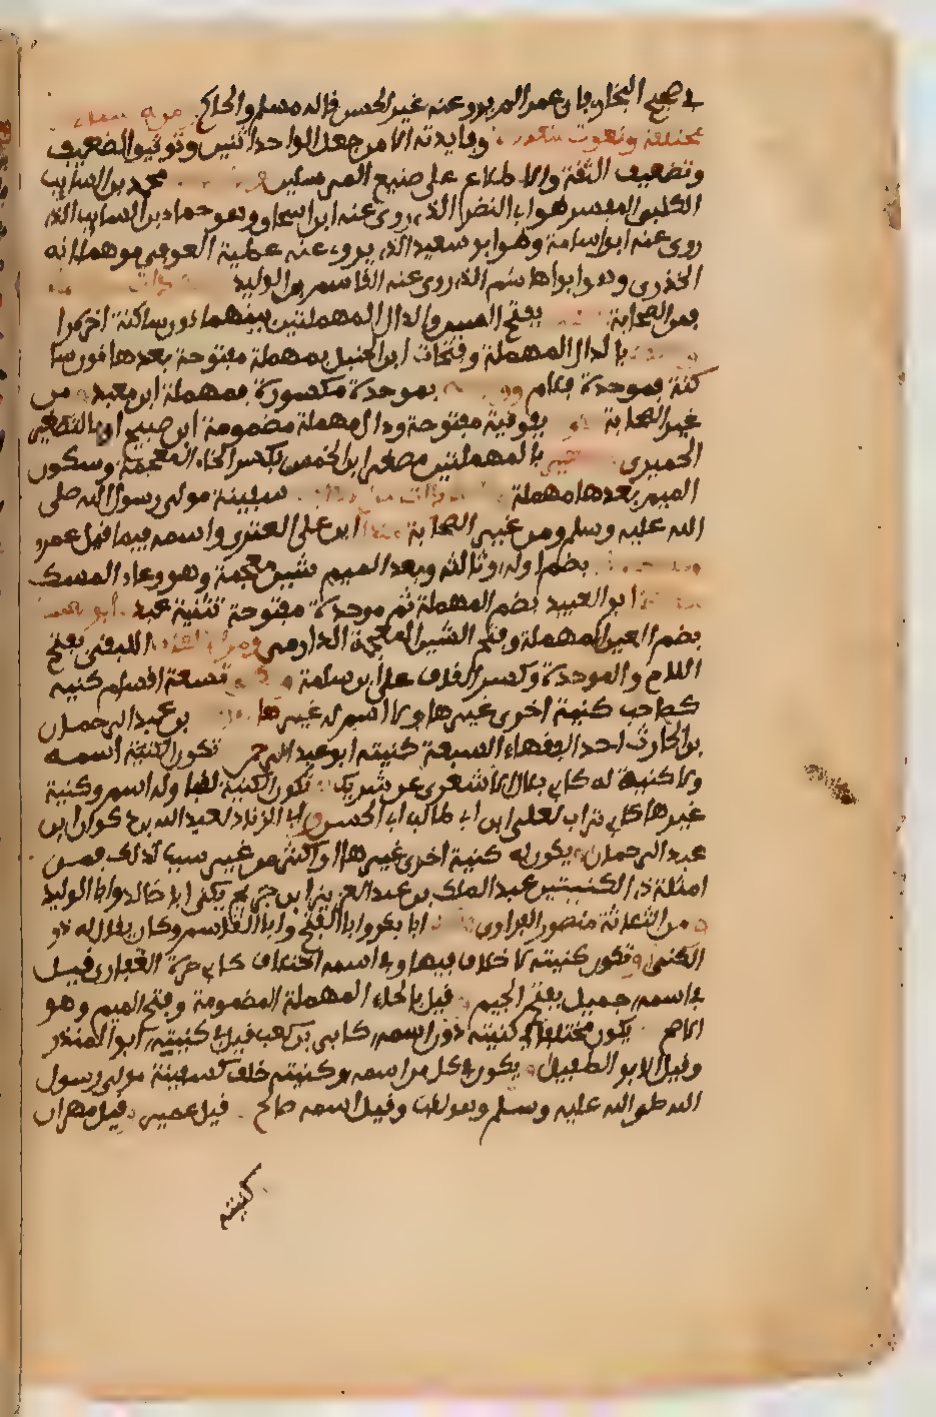 في صحيح البخاري بان عمر المريرو عنه غير الحسن قاله مسلم والحاكم
مختلفة ونعوت متعددة وفايدته الامن من جعل الواحد اثنين وتوثيق الضعيف
وتضعيف الثقة والاطلاع على صنيع المدلسين محمد بن السايب
الكلبي المفسر هو ابو النضر الذي روى عنه ابن اسحاق وهو حماد بن السايب الذي
روى عنه ابو اسامة وهو ابو سعيد الذي يروي عنه عطية العوفي موهما انه
الخدري وهو ابو هشام الذي روى عنه القاسم بن الوليد
فمن الصحابة بفتح السين والدال المهملتين بينهما نون ساكنة اخره را
بالدال المهملة وفتحات ابن الحنبل بمهملة مفتوحة بعدها نون سا
كنة فموحدة فلام بموحدة مكسورة فمهملة ابن معبد من
غير الصحابة بفوقية مفتوحة ودال مهملة مضمومة ابن صبيح بالتصغير
الحميري بالمهملتين مصغر ابن الخمس بكسر الخاء المعجمة وسكون
الميم بعدها مهملة سفينة مولى رسول الله صلى
الله عليه وسلم ومن غير الصحابة مندل ابن علي العنزي واسمه فيما قيل عمرو
بضم اوله وثالثه وبعد الميم شين معجمة وهو وعاء المسك
ابو العبيد بضم المهملة ثم موحدة مفتوحة تثنية عبد
بضم العين المهملة وفتح الشين المعجمة الدارمي اللبقي بفتح
اللام والموحدة وكسر القاف علي بن سلمة تسعة اقسام كنيه
كصاحب كنية اخرى غيرها ولا اسم له غيرها بن عبد الرحمان
بن الحارث احد الفقهاء السبعة كنيته ابو عبد الرحمن تكون الكنية اسمه
ولا كنية له كابي بلال الاشعري عن شريك تكون الكنية لقبا وله اسم وكنية
غيرها كابي تراب لعلي ابن ابي طالب ابي الحسن وابي الزناد لعبد الله بن ذكوان ابي
عبد الرحمان يكون له كنية اخرى غيرها او اكثر من غير سبب لذلك فمن
امثلة ذي الكنيتين عبد الملك بن عبد العزيز ابن جريج يكنى ابا خالد وابا الوليد
من الثلاثة منصور الفراوي ابا بكر وابا الفتح وابا القاسم وكان يقال له ذو
الكنى وتكون كنيته لا خلاف فيها وفي اسمه اختلاف كابي بصرة الغفاري قيل
في اسمه جميل بفتح الجيم قيل بالحاء المهملة المضمومة وفتح الميم وهو
الاصح يكون مختلفا في كنيته دون اسمه كابي بن كعب قيل في كنيته ابو المنذر
وقيل ابو الطفيل يكون في كل من اسمه وكنيته خلف كسفينة مولى رسول
الله صلى الله عليه وسلم وهو لقب وقيل اسمه صالح قيل عمير قيل مهران
كنيته